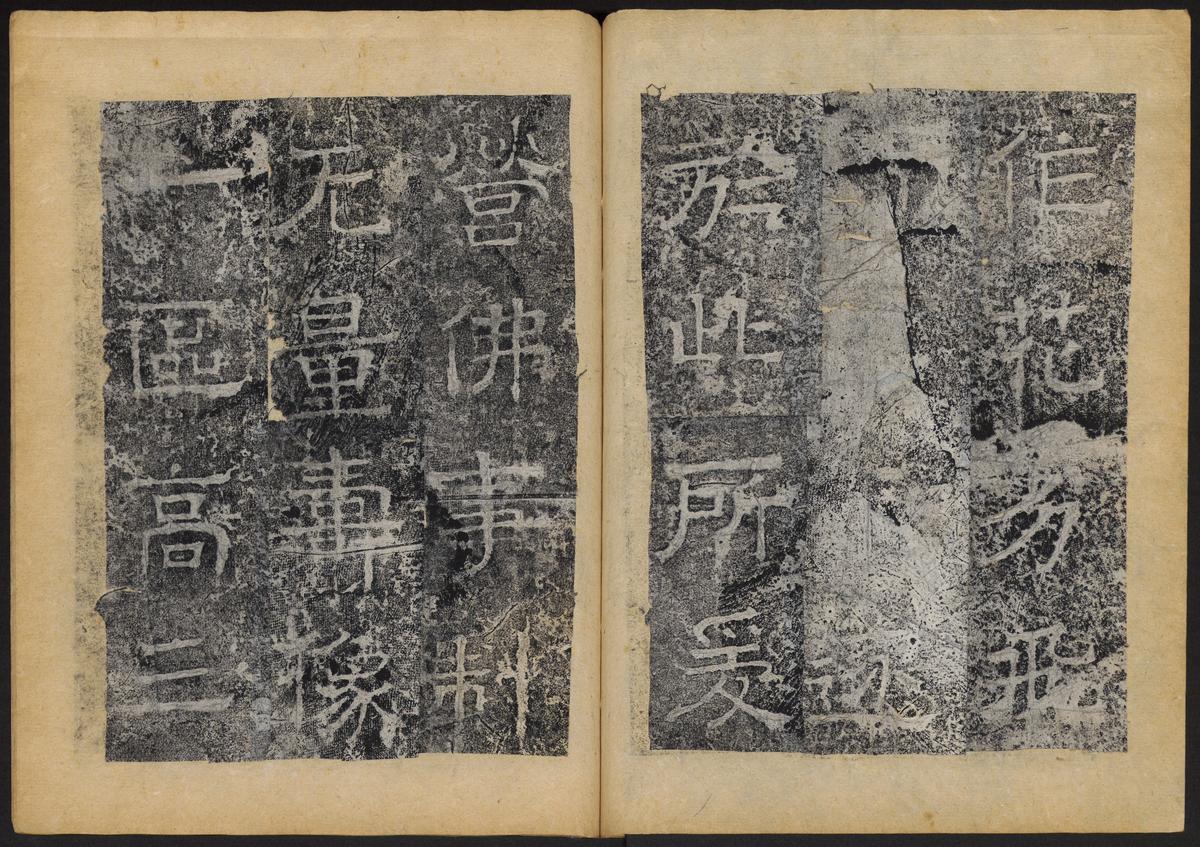 作花飛
迹
於此所爰
營佛事制
无量壽像
一區高三